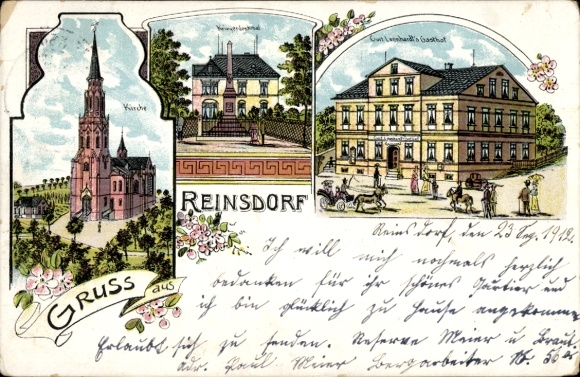 Kriegerdenkmal
Curt Leonhardt's Gasthof
Kirche
REINSDORF
GRUSS aus
Reinsdorf, den 23 Sep. 1912.
Ich will mich nochmals herzlich
bedanken für ihr schönes Quartier und
ich bin glücklich zu Hause angekommen
Erlaubt sich zu senden. Reserve Meier u Braut
Adr. Paul Meier Bergarbeiter N. 56